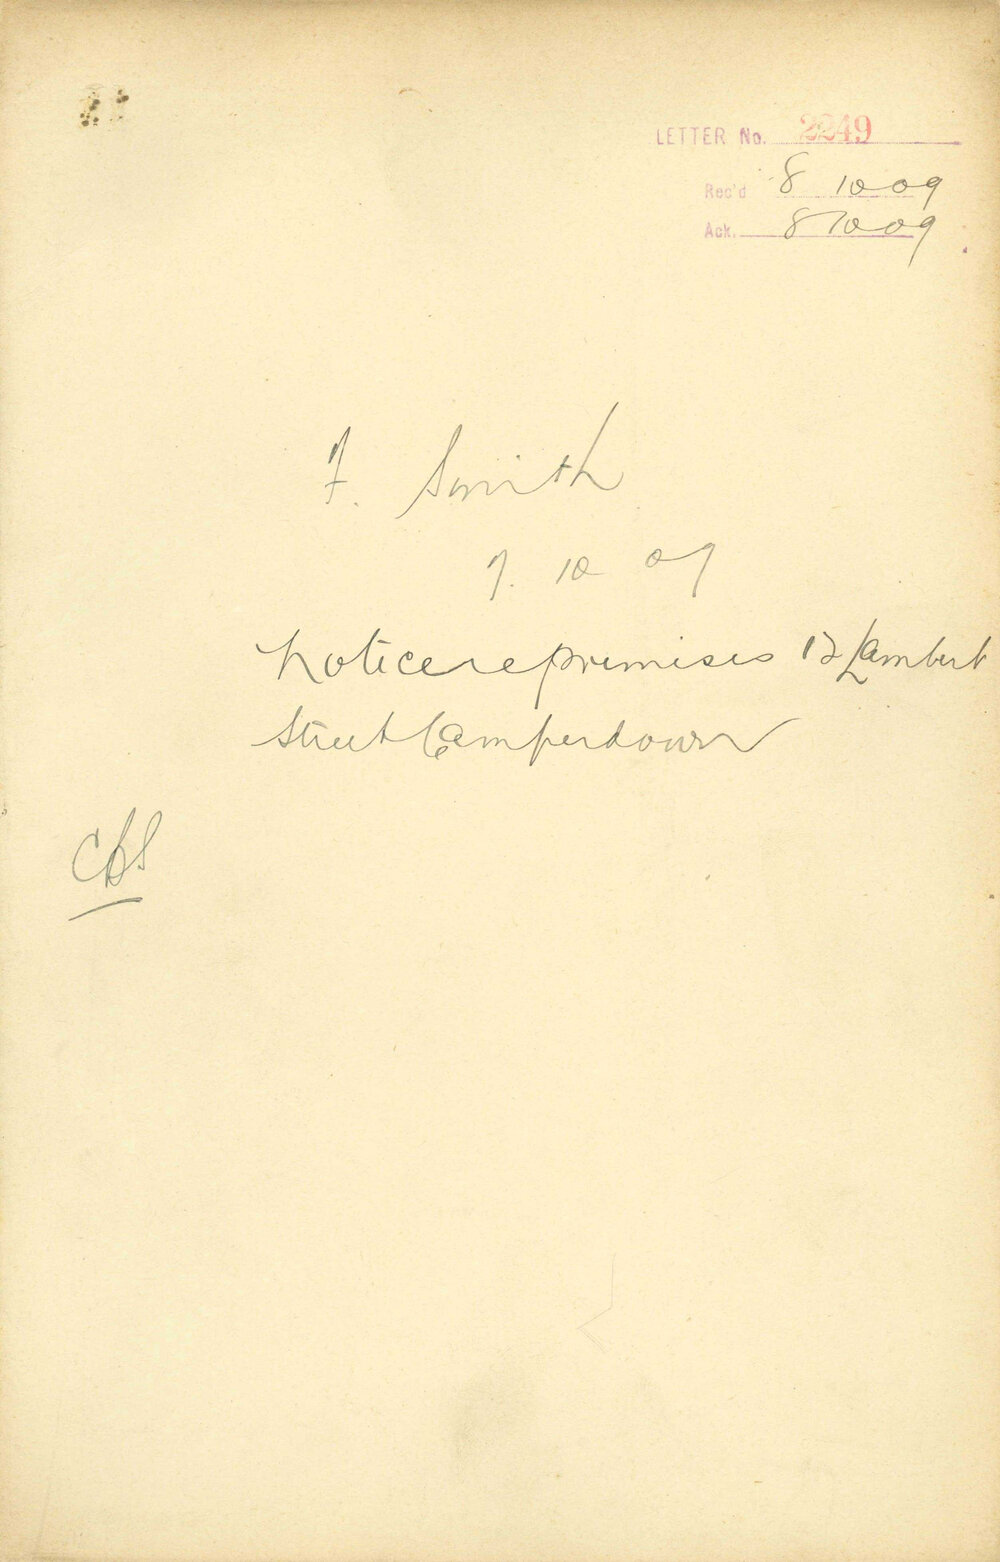 LETTER No. 2249
Rec'd 8 10 09
Ack. 8 10 09
F. Smith
7. 10 09
Notice re premises 12 Lambert
Street Camperdown